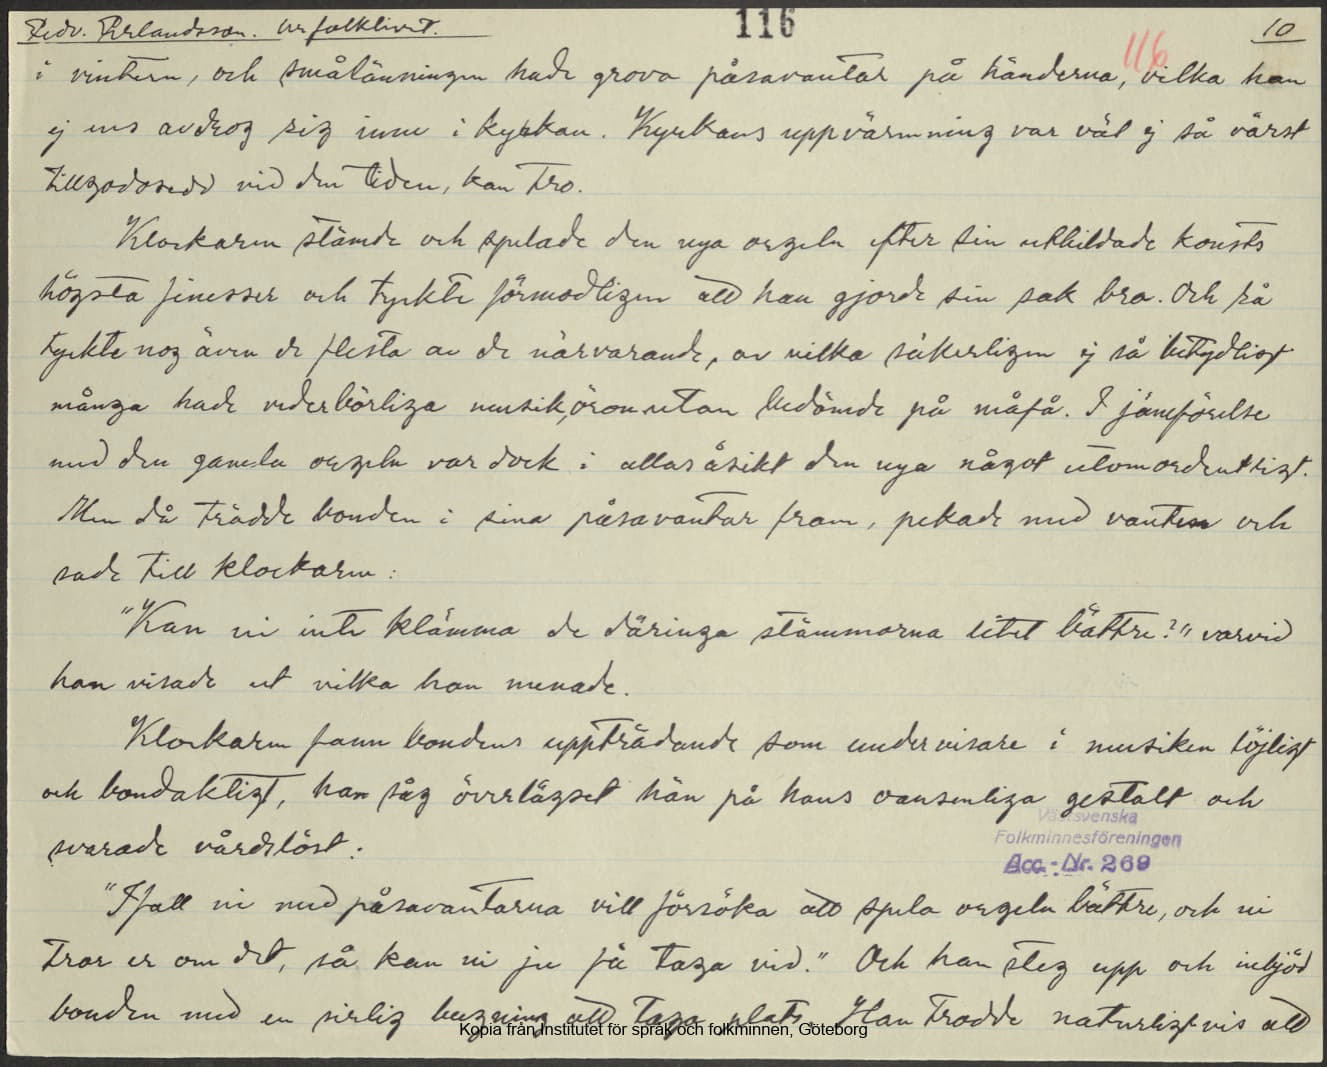 Fredr. Erlandsson. Ur folklivet.
116
10
116
i vintern, och smålänningen hade grova påsavantar på händerna, vilka han
ej ens avdrog sig inne i kyrkan. Kyrkans uppvärmning var väl ej så värst
tillgodosedd vid den tiden, kan tro.
Klockaren stämde och spelade den nya orgeln efter sin utbildade konsts
högsta finesser och tyckte förmodligen att han gjorde sin sak bra. Och så
tyckte nog även de flesta av de närvarande, av vilka säkerligen ej så betydligt
många hade vederbörliga musiköron utan bedömde på måfå. I jämförelse
med den gamla orgeln var dock i allas åsikt den nya något utomordentligt.
Men då trädde bonden i sina påsavantar fram, pekade med vanten och
sade till klockaren:
"Kan ni inte klämma de däringa stämmorna litet bättre?" varvid
han visade ut vilka han menade.
Klockaren fann bondens uppträdande som undervisare i musiken löjligt
och bondaktigt, han såg överlägset hän på hans oansenliga gestalt och
svarade vårdslöst:
Västsvenska
Folkminnesföreningen
Acc.-Nr. 269
"Ifall ni med påsavantarna vill försöka att spela orgeln bättre, och ni
tror er om det, så kan ni ju få taga vid." Och han steg upp och inbjöd
bonden med en sirlig bugning att taga plats. Han trodde naturligtvis att
Kopia från Institutet för språk och folkminnen, Göteborg